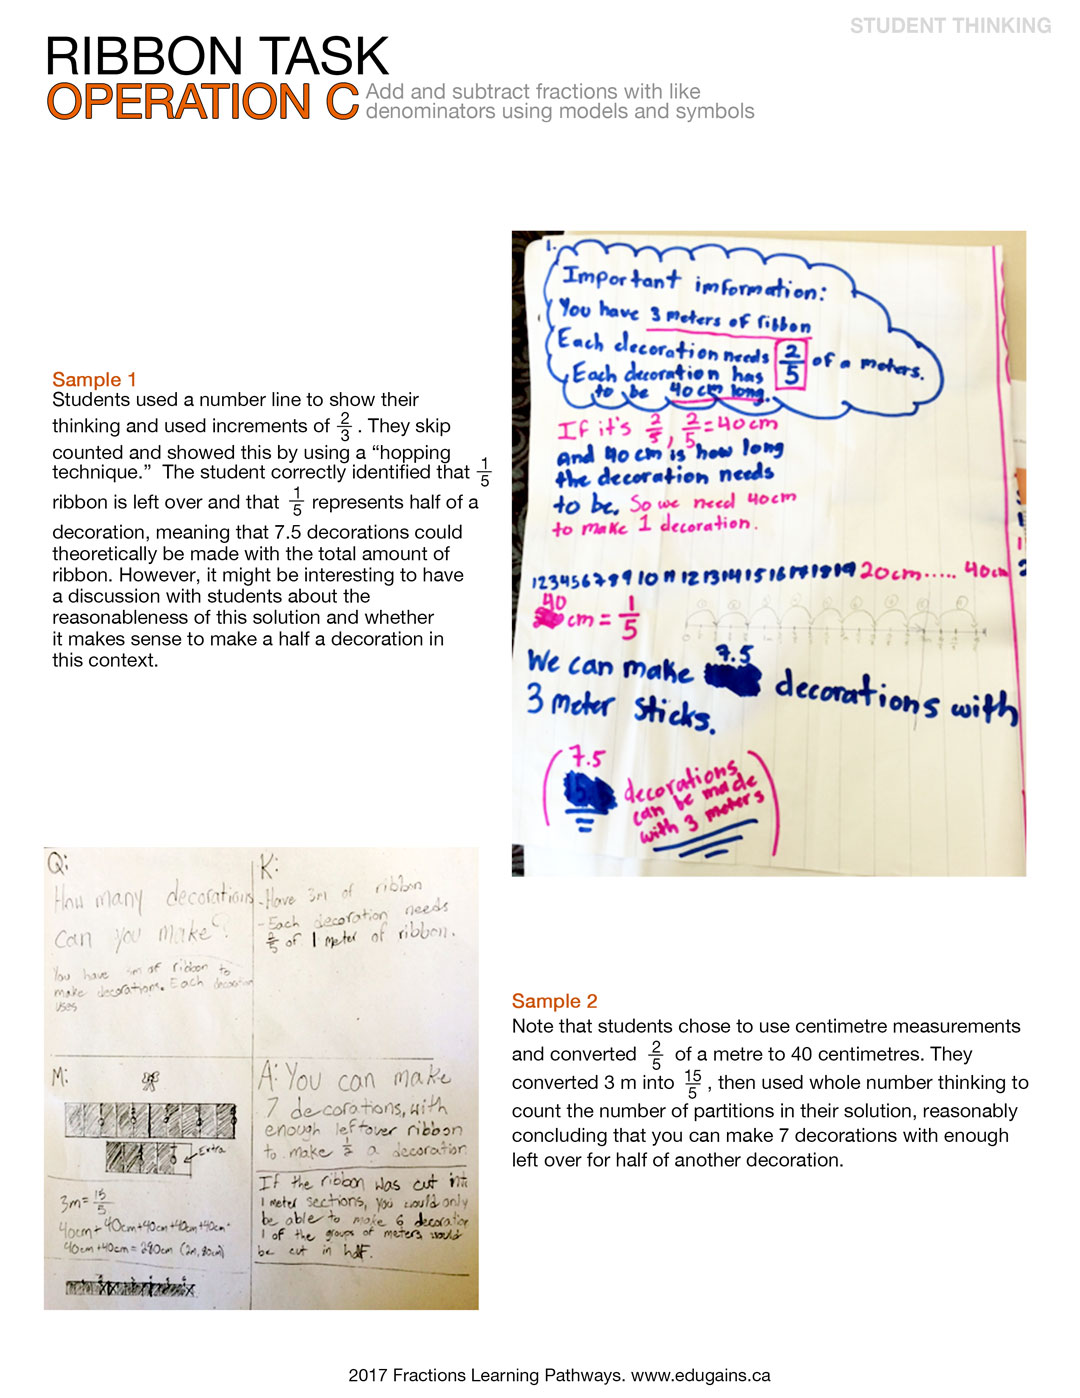 STUDENT THINKING
RIBBON TASK
OPERATION C
Add and subtract fractions with like
denominators using models and symbols
Sample 1
Students used a number line to show their
thinking and used increments of 2/3 . They skip
counted and showed this by using a “hopping
technique.” The student correctly identified that 1/5
ribbon is left over and that 1/5 represents half of a
decoration, meaning that 7.5 decorations could
theoretically be made with the total amount of
ribbon. However, it might be interesting to have
a discussion with students about the
reasonableness of this solution and whether
it makes sense to make a half a decoration in
this context.
1.
Important imformation:
You have 3 meters of ribbon
Each decoration needs 2/5 of a meters.
Each decoration has
to be 40cm long.
If it's 2/5, 2/5=40cm
and 40 cm is how long
the decoration needs
to be. So we need 40cm
to make 1 decoration.
1 2 3 4 5 6 7 8 9 10 11 12 13 14 15 16 17 18 19 20cm..... 40cm
40 cm = 1/5
We can make 7.5 decorations with
3 meter sticks.
(7.5 decorations
can be made
with 3 meters)
Q:
How many decorations
can you make?
You have 3m of ribbon to
make decorations. Each decoration
uses
K:
-Have 3m of ribbon
-Each decoration needs
2/5 of 1 meter of ribbon.
M:
Extra
3m= 15/5
40cm+40cm+40cm+40cm+40cm+
40cm+40cm=280cm (2m, 80cm)
A: You can make
7 decorations, with
enough leftover ribbon
to make 1/2 a decoration
If the ribbon was cut into
1 meter sections, you would only
be able to make 6 decoration
1 of the groups of meters would
be cut in half.
Sample 2
Note that students chose to use centimetre measurements
and converted 2/5 of a metre to 40 centimetres. They
converted 3 m into 15/5 , then used whole number thinking to
count the number of partitions in their solution, reasonably
concluding that you can make 7 decorations with enough
left over for half of another decoration.
2017 Fractions Learning Pathways. www.edugains.ca